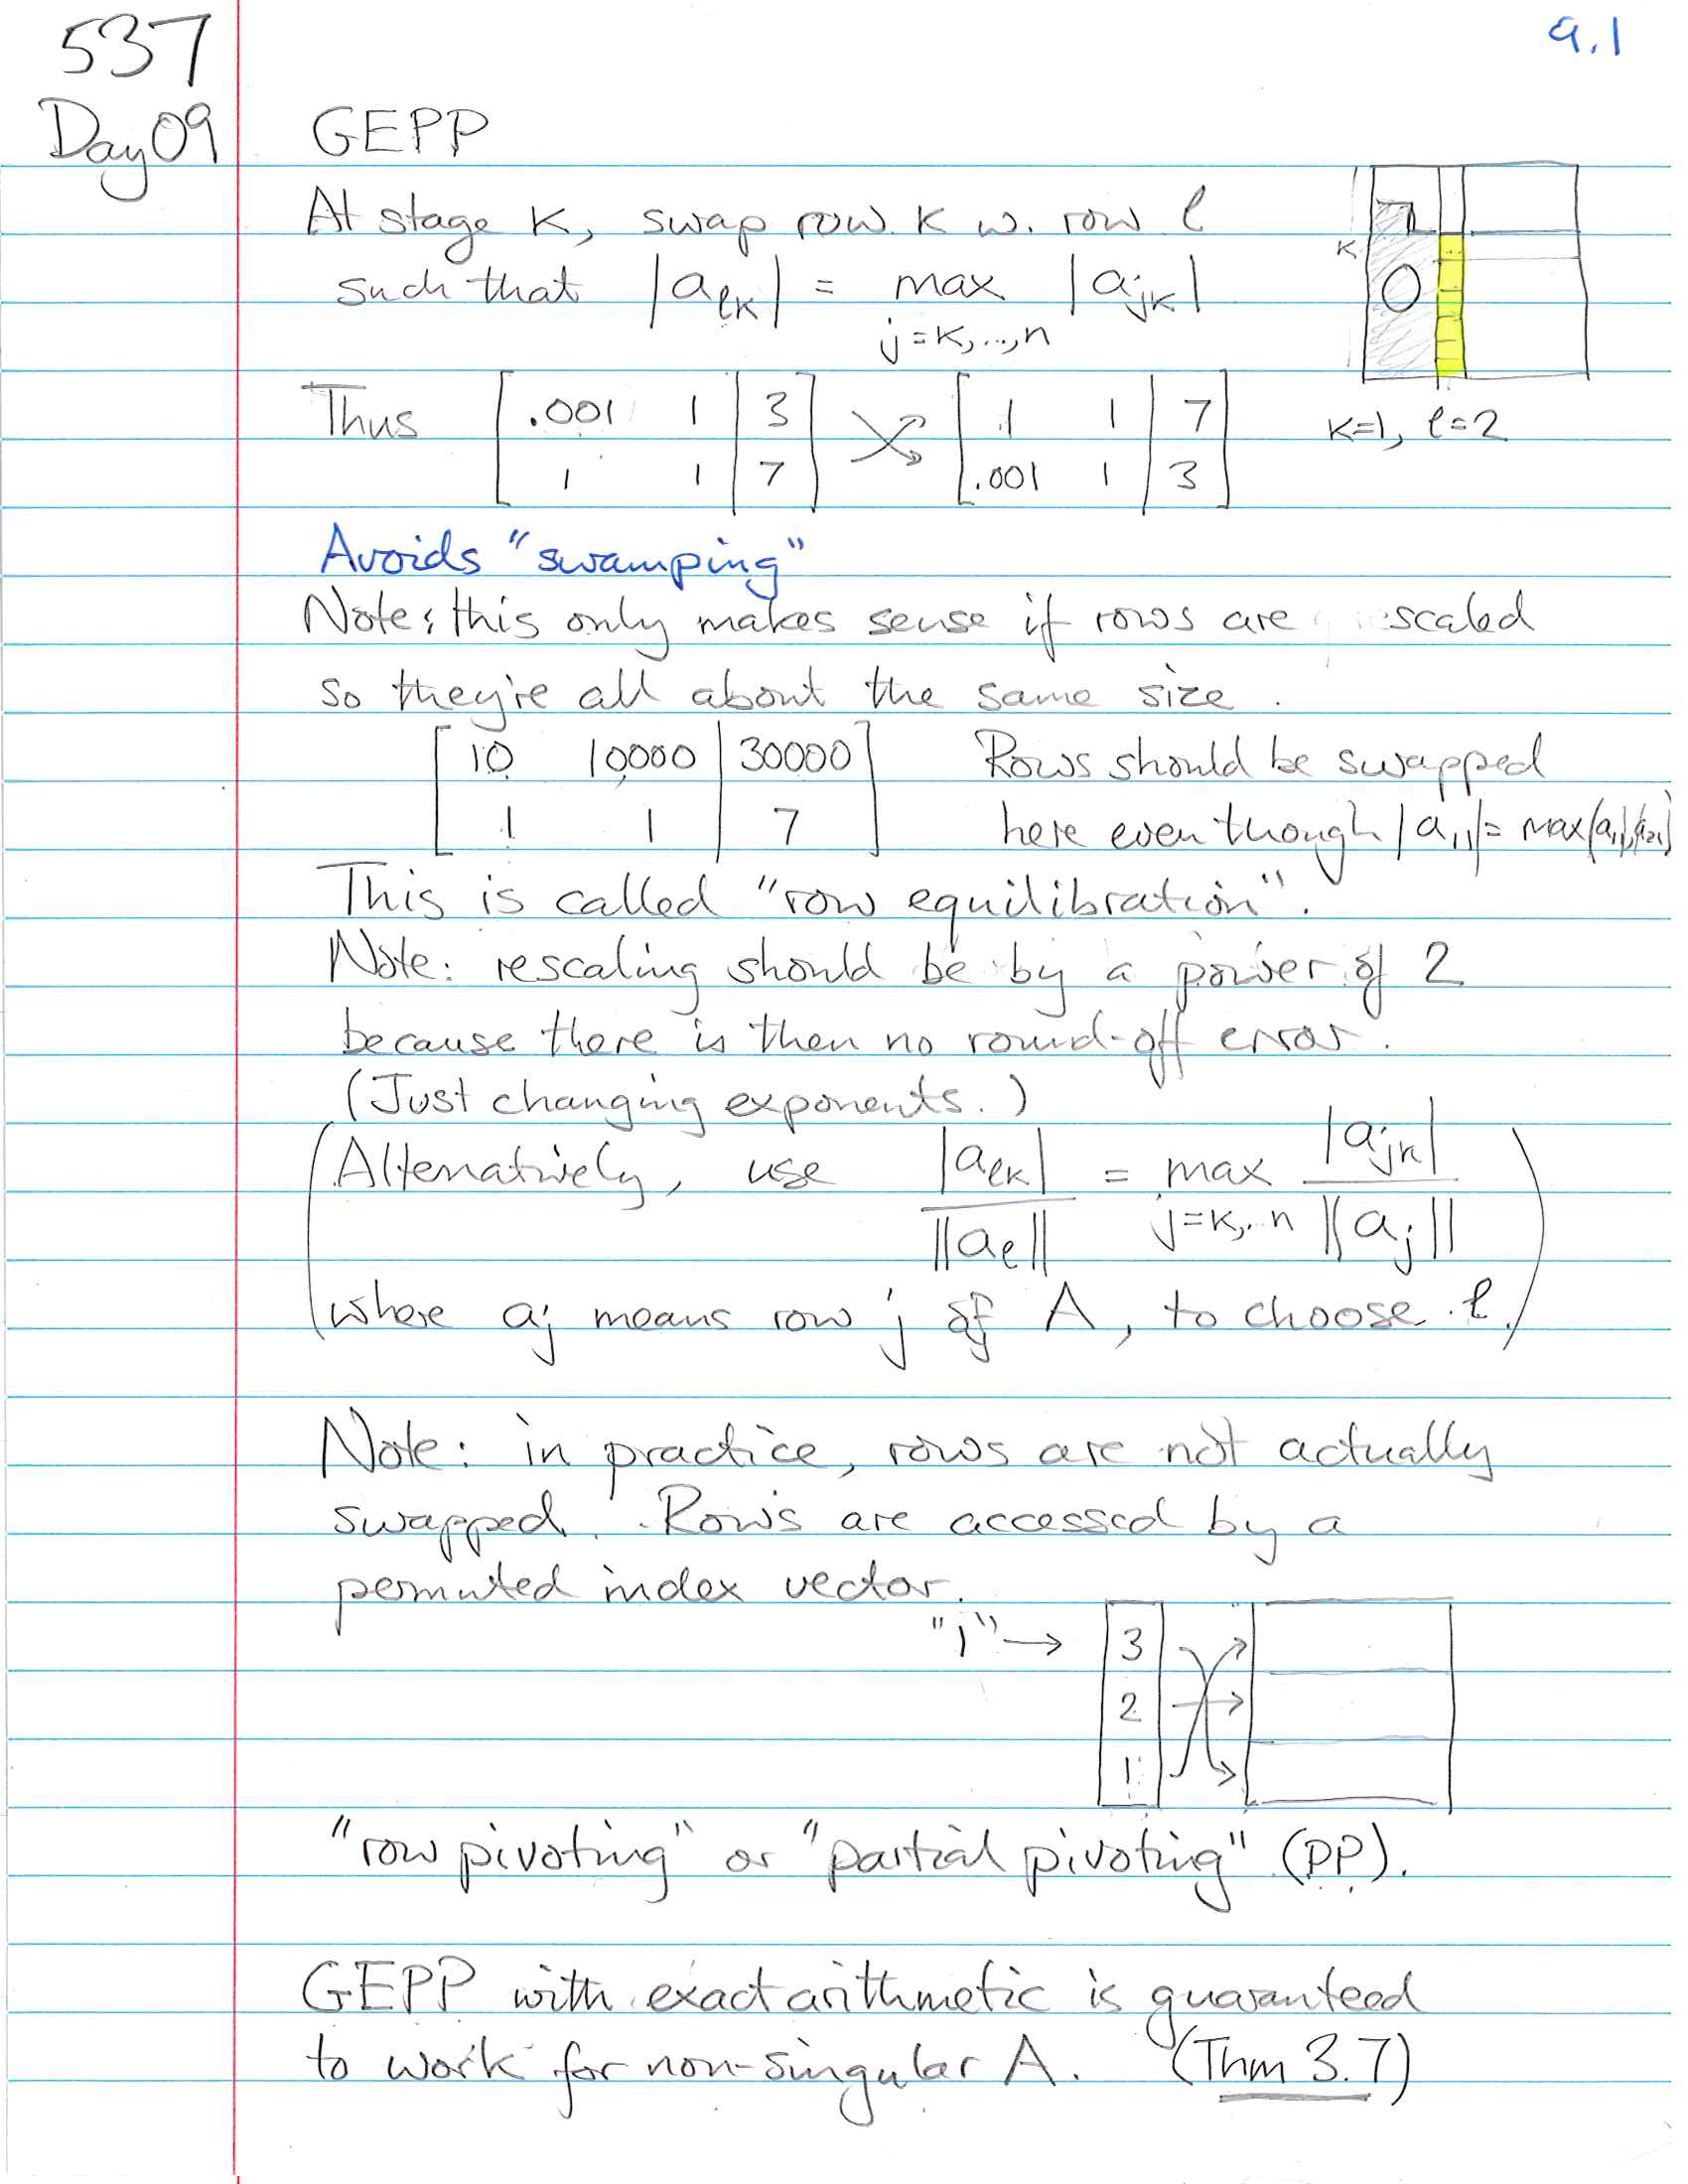 537
9.1
Day 09
GEPP
At stage K, swap row K w. row ℓ
such that |a_ℓK| = max_{j=K,...,n} |a_jK|
K
0
Thus [ .001 1 | 3 ] [ 1 1 | 7 ] K=1, ℓ=2
[ 1 1 | 7 ] [ .001 1 | 3 ]
Avoids "swamping"
Note: this only makes sense if rows are scaled
so they're all about the same size.
[ 10 10000 | 30000 ] Rows should be swapped
[ 1 1 | 7 ] here even though |a_11| = max|a_11|,|a_21|
This is called "row equilibration".
Note: rescaling should be by a power of 2
because there is then no round-off error.
(Just changing exponents.)
(Alternatively, use |a_ℓK| / ||a_ℓ|| = max_{j=K,..n} |a_jK| / ||a_j||
where a_j means row j of A, to choose ℓ.)
Note: in practice, rows are not actually
swapped. Rows are accessed by a
permuted index vector.
"i" → 3
2
1
"row pivoting" or "partial pivoting" (PP).
GEPP with exact arithmetic is guaranteed
to work for non-singular A. (Thm 3.7)